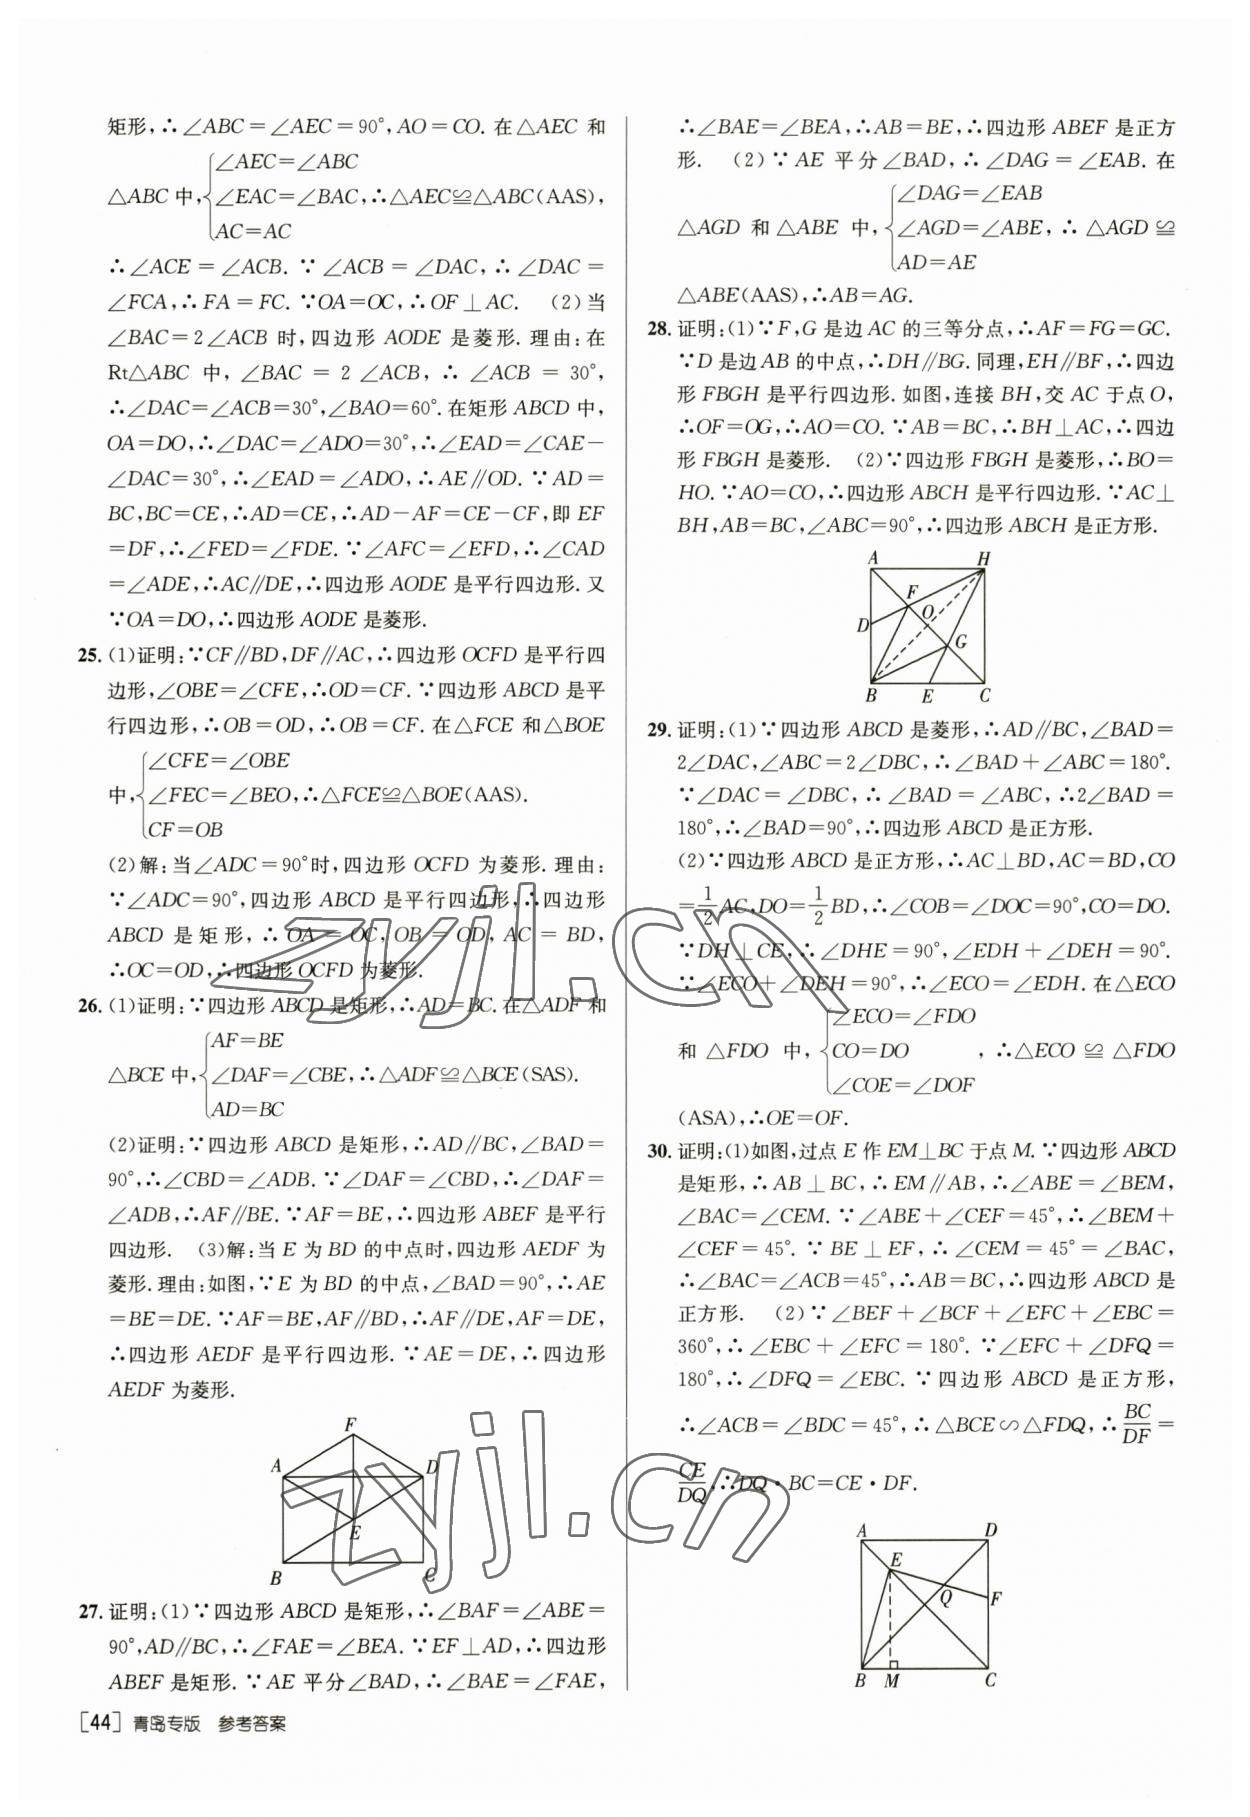 矩形,∴∠ABC=∠AEC=90°,AO=CO.在△AEC 和
△ABC 中,{∠AEC=∠ABC
∠EAC=∠BAC,∴△AEC≌△ABC(AAS),
AC=AC
∴∠ACE=∠ACB.∵∠ACB=∠DAC,∴∠DAC=
∠FCA,∴FA=FC.∵OA=OC,∴OF⊥AC. (2)当
∠BAC=2∠ACB 时,四边形 AODE 是菱形.理由:在
Rt△ABC 中,∠BAC=2∠ACB,∴∠ACB=30°,
∴∠DAC=∠ACB=30°,∠BAO=60°.在矩形 ABCD 中,
OA=DO,∴∠DAC=∠ADO=30°,∴∠EAD=∠CAE-
∠DAC=30°,∴∠EAD=∠ADO,∴AE∥OD.∵AD=
BC,BC=CE,∴AD=CE,∴AD-AF=CE-CF,即 EF
=DF,∴∠FED=∠FDE.∵∠AFC=∠EFD,∴∠CAD
=∠ADE,∴AC∥DE,∴四边形 AODE 是平行四边形.又
∵OA=DO,∴四边形 AODE 是菱形.
25. (1)证明:∵CF∥BD,DF∥AC,∴四边形 OCFD 是平行四
边形,∠OBE=∠CFE,∴OD=CF.∵四边形 ABCD 是平
行四边形,∴OB=OD,∴OB=CF.在△FCE 和△BOE
中,{∠CFE=∠OBE
∠FEC=∠BEO,∴△FCE≌△BOE(AAS).
CF=OB
(2)解:当∠ADC=90°时,四边形 OCFD 为菱形.理由:
∵∠ADC=90°,四边形 ABCD 是平行四边形,∴四边形
ABCD 是矩形,∴OA=OC,OB=OD,AC=BD,
∴OC=OD,∴四边形 OCFD 为菱形.
26. (1)证明:∵四边形 ABCD 是矩形,∴AD=BC.在△ADF 和
△BCE 中,{AF=BE
∠DAF=∠CBE,∴△ADF≌△BCE(SAS).
AD=BC
(2)证明:∵四边形 ABCD 是矩形,∴AD∥BC,∠BAD=
90°,∴∠CBD=∠ADB.∵∠DAF=∠CBD,∴∠DAF=
∠ADB,∴AF∥BE.∵AF=BE,∴四边形 ABEF 是平行
四边形. (3)解:当 E 为 BD 的中点时,四边形 AEDF 为
菱形.理由:如图,∵E 为 BD 的中点,∠BAD=90°,∴AE
=BE=DE.∵AF=BE,AF∥BD,∴AF∥DE,AF=DE,
∴四边形 AEDF 是平行四边形.∵AE=DE,∴四边形
AEDF 为菱形.
F
A D
E
B C
27. 证明:(1)∵四边形 ABCD 是矩形,∴∠BAF=∠ABE=
90°,AD∥BC,∴∠FAE=∠BEA.∵EF⊥AD,∴四边形
ABEF 是矩形.∵AE 平分∠BAD,∴∠BAE=∠FAE,
[44] 青岛专版 参考答案
∴∠BAE=∠BEA,∴AB=BE,∴四边形 ABEF 是正方
形. (2)∵AE 平分∠BAD,∴∠DAG=∠EAB.在
△AGD 和△ABE 中,{∠DAG=∠EAB
∠AGD=∠ABE,∴△AGD≌
AD=AE
△ABE(AAS),∴AB=AG.
28. 证明:(1)∵F,G 是边 AC 的三等分点,∴AF=FG=GC.
∵D 是边 AB 的中点,∴DH∥BG.同理,EH∥BF,∴四边
形 FBGH 是平行四边形.如图,连接 BH,交 AC 于点 O,
∴OF=OG,∴AO=CO.∵AB=BC,∴BH⊥AC,∴四边
形 FBGH 是菱形. (2)∵四边形 FBGH 是菱形,∴BO=
HO.∵AO=CO,∴四边形 ABCH 是平行四边形.∵AC⊥
BH,AB=BC,∠ABC=90°,∴四边形 ABCH 是正方形.
A H
F
O
D
G
B E C
29. 证明:(1)∵四边形 ABCD 是菱形,∴AD∥BC,∠BAD=
2∠DAC,∠ABC=2∠DBC,∴∠BAD+∠ABC=180°.
∵∠DAC=∠DBC,∴∠BAD=∠ABC,∴2∠BAD=
180°,∴∠BAD=90°,∴四边形 ABCD 是正方形.
(2)∵四边形 ABCD 是正方形,∴AC⊥BD,AC=BD,CO
=1/2AC,DO=1/2BD,∴∠COB=∠DOC=90°,CO=DO.
∵DH⊥CE,∴∠DHE=90°,∠EDH+∠DEH=90°.
∵∠ECO+∠DEH=90°,∴∠ECO=∠EDH.在△ECO
和△FDO 中,{∠ECO=∠FDO
CO=DO ,∴△ECO≌△FDO
∠COE=∠DOF
(ASA),∴OE=OF.
30. 证明:(1)如图,过点 E 作 EM⊥BC 于点 M.∵四边形 ABCD
是矩形,∴AB⊥BC,∴EM∥AB,∴∠ABE=∠BEM,
∠BAC=∠CEM.∵∠ABE+∠CEF=45°,∴∠BEM+
∠CEF=45°.∵BE⊥EF,∴∠CEM=45°=∠BAC,
∴∠BAC=∠ACB=45°,∴AB=BC,∴四边形 ABCD 是
正方形. (2)∵∠BEF+∠BCF+∠EFC+∠EBC=
360°,∴∠EBC+∠EFC=180°.∵∠EFC+∠DFQ=
180°,∴∠DFQ=∠EBC.∵四边形 ABCD 是正方形,
∴∠ACB=∠BDC=45°,∴△BCE∽△FDQ,∴BC/DF=
CE/DQ,∴DQ·BC=CE·DF.
A D
E
Q F
B M C
zyjl.cn
zyjl.cn